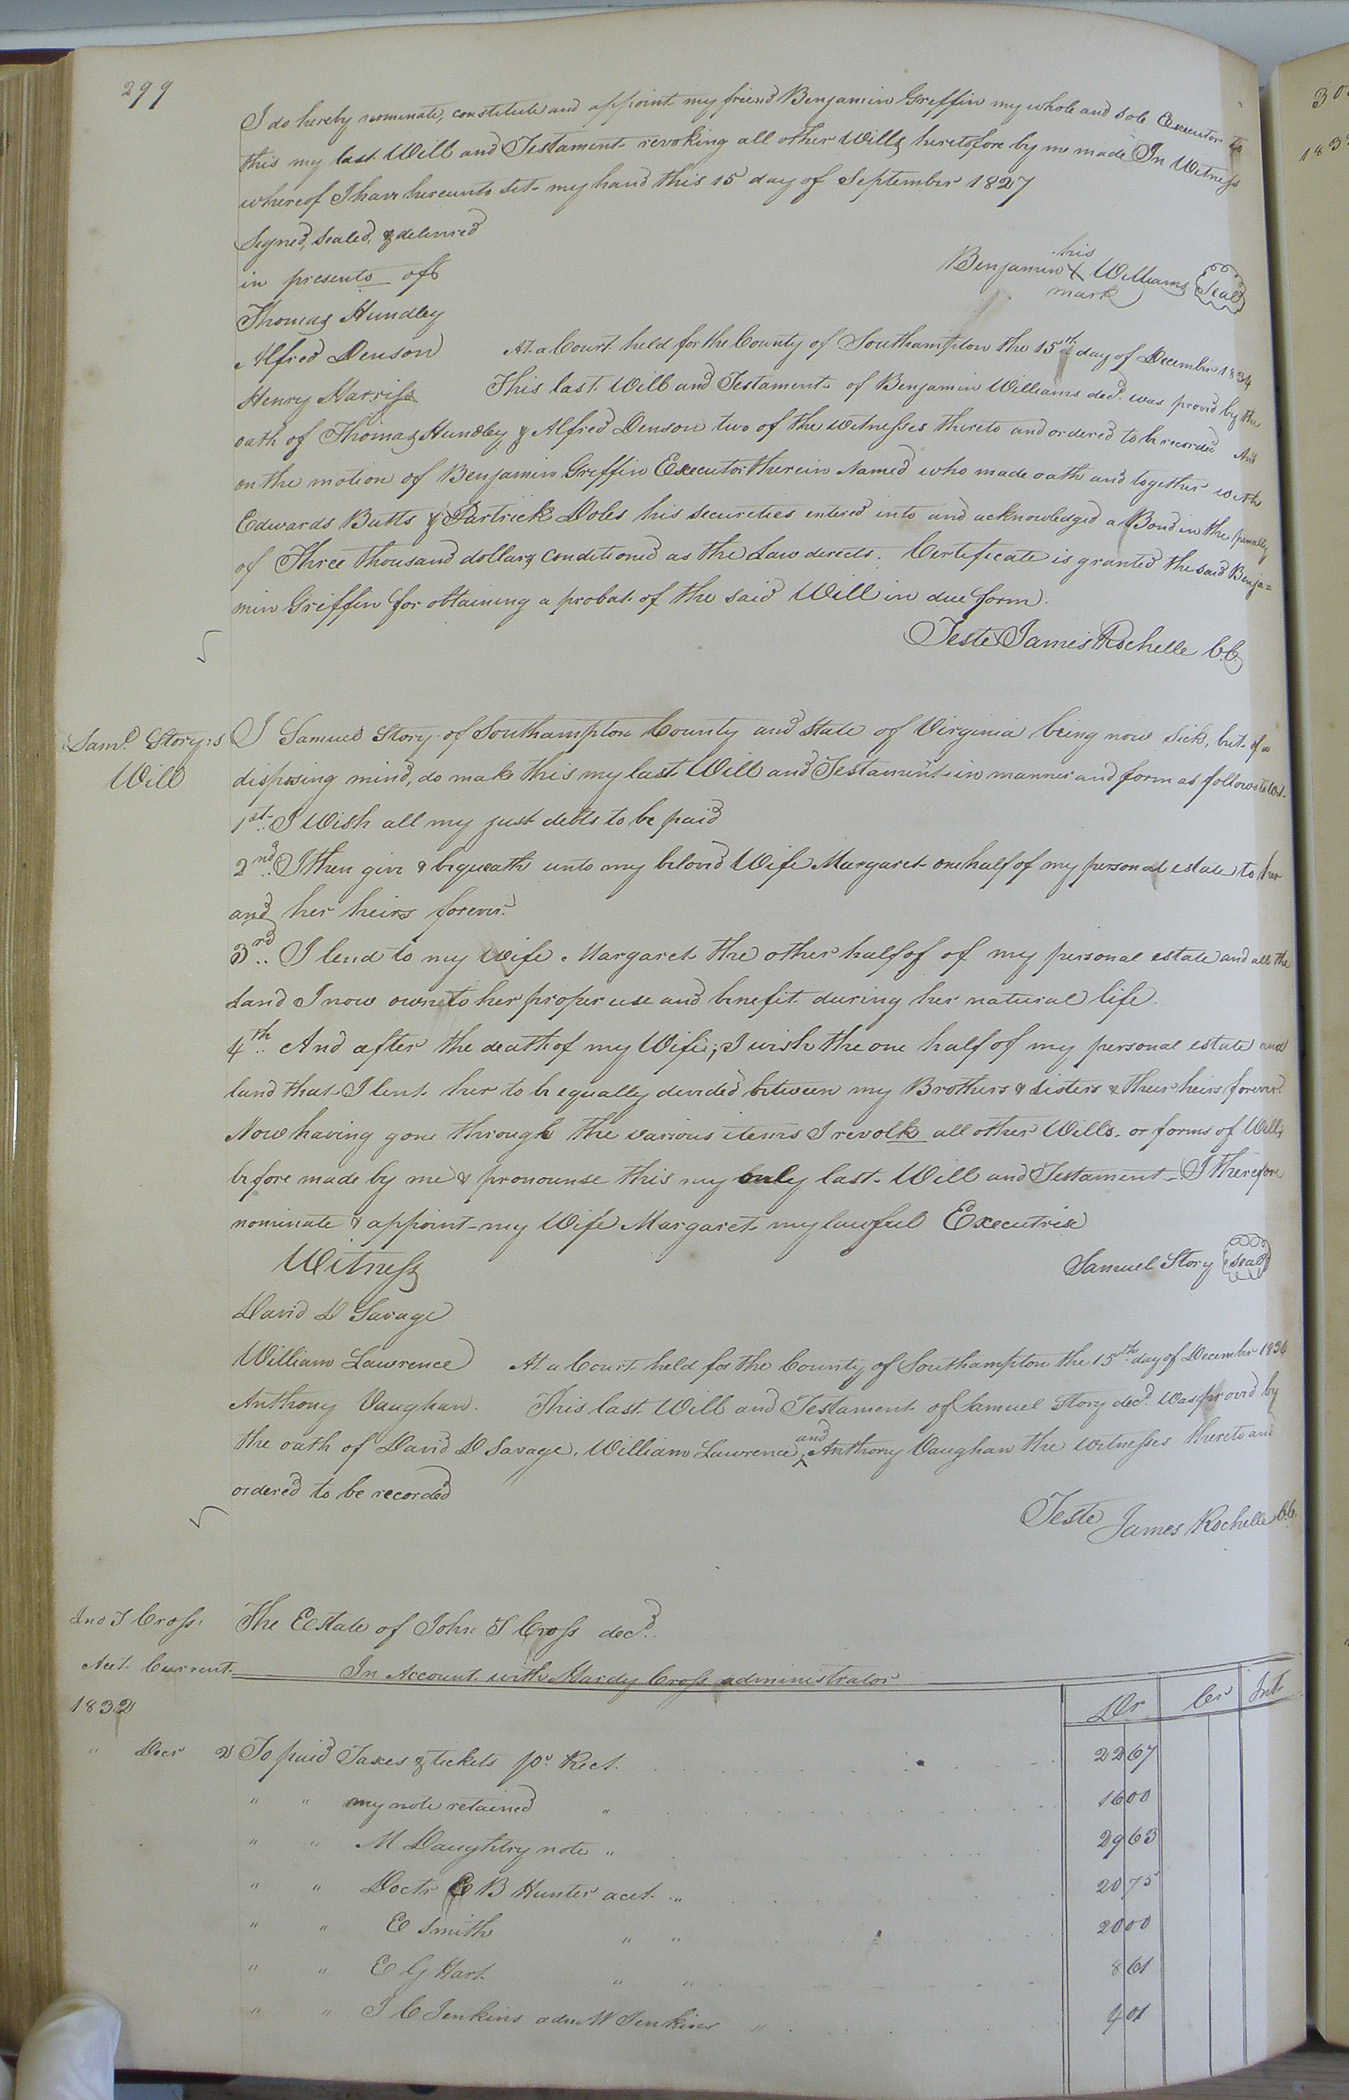 299
I do hereby nominate, constitute and appoint my friend Benjamin Griffin my whole and sole Executor to
this my last Will and Testament revoking all other Wills heretofore by me made In Witness
whereof I have hereunto set my hand this 15 day of September 1827
Signed, sealed, & delivered
in presents of
his
Benjamin X Williams Seal
mark
Thomas Hundley
Alfred Denson
At a Court held for the County of Southampton the 15th day of December 1834
Henry Harriss
This last Will and Testament of Benjamin Williams decd. was provd by the
oath of Thomas Hundley & Alfred Denson two of the witnesses thereto and ordered to be recorded And
on the motion of Benjamin Griffin Executor therein Named who made oath and together with
Edwards Butts & Partrick Doles his securities entered into and acknowledged a Bond in the penalty
of Three thousand dollars conditioned as the Law directs. Certificate is granted the said Benja=
min Griffin for obtaining a probat of the said Will in due form.
Teste James Rochelle C.C.
Saml. Story's
Will
I Samuel Story of Southampton County and State of Virginia being now Sick, but of a
disposing mind, do make this my last Will and Testament in manner and form as follows to Wit-
1st. I Wish all my just debts to be paid
2nd. I then give & bequeath unto my belovd Wife Margaret one half of my personal estate to her
and her heirs forever.
3rd.. I lend to my Wife Margaret the other half of of my personal estate and all the
Land I now own to her proper use and benefit during her natural life.
4th.. And after the death of my Wife; I wish the one half of my personal estate and
land that I lent her to be equally devided between my Brothers & Sisters & their heirs forever.
Now having gone through the various items I revolk all other Wills or forms of Wills
before made by me & pronounse this my only last Will and Testament - I therefore
nominate & appoint my Wife Margaret my lawful Executrix
Witness
Samuel Story Seal
David D Savage
William Lawrence
At a Court held for the County of Southampton the 15th day of December 1834
Anthony Vaughan.
This last Will and Testament of Samuel Story decd. Was provd by
the oath of David D Savage, William Lawrence and Anthony Vaughan the witnesses thereto and
ordered to be recorded
Teste James Rochelle C.C.
Jno T Cross.
Acct. Current
The Estate of John T Cross decd.
In Account with Hardy Cross administrator
Dr Cr Int.
1832
" Decr 2 To paid Taxes & tickets pr. Rect. 22 67
" " my note retained " 16 00
" " M Daughtry note " 29 63
" " Doctr E B Hunter acct. " 20 75
" " E Smith " " 20 00
" " E G Hart " " 8 61
" " J C Jenkins adm W Jenkins " 4 01